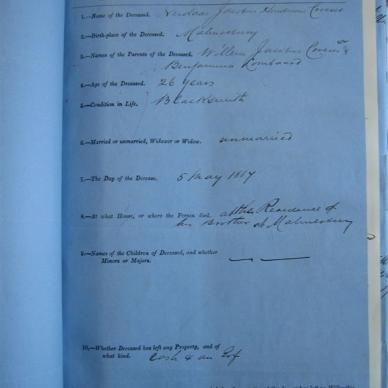 1.—Name of the Deceased. Jacobus
2.—Birth-place of the Deceased. Malmesbury
3.—Names of the Parents of the Deceased. Willem Jacobus &
Benjamina Lombaard
4.—Age of the Deceased. 26 years
5.—Condition in Life. Blacksmith
6.—Married or unmarried, Widower or Widow. unmarried
7.—The Day of the Decease. 5 May
8.—At what House, or where the Person died. at the Residence of
Brother at Malmesbury
9.—Names of the Children of Deceased, and whether
Minors or Majors.
10.—Whether Deceased has left any Property, and of
what kind. Cash & an Erf